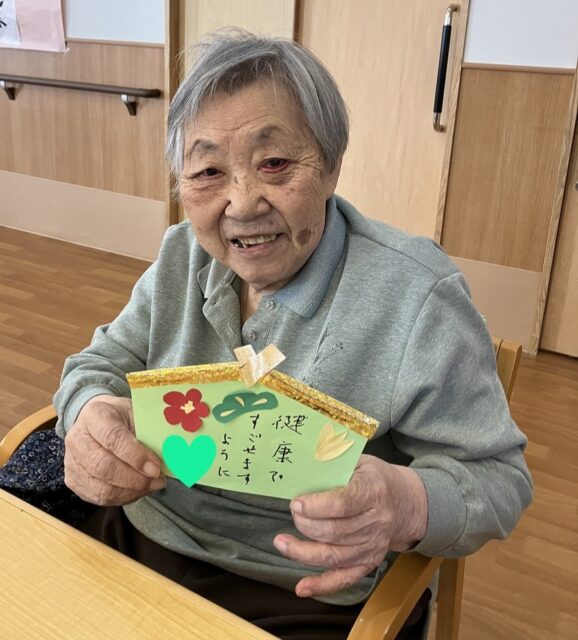 健康で
すごせます
ように